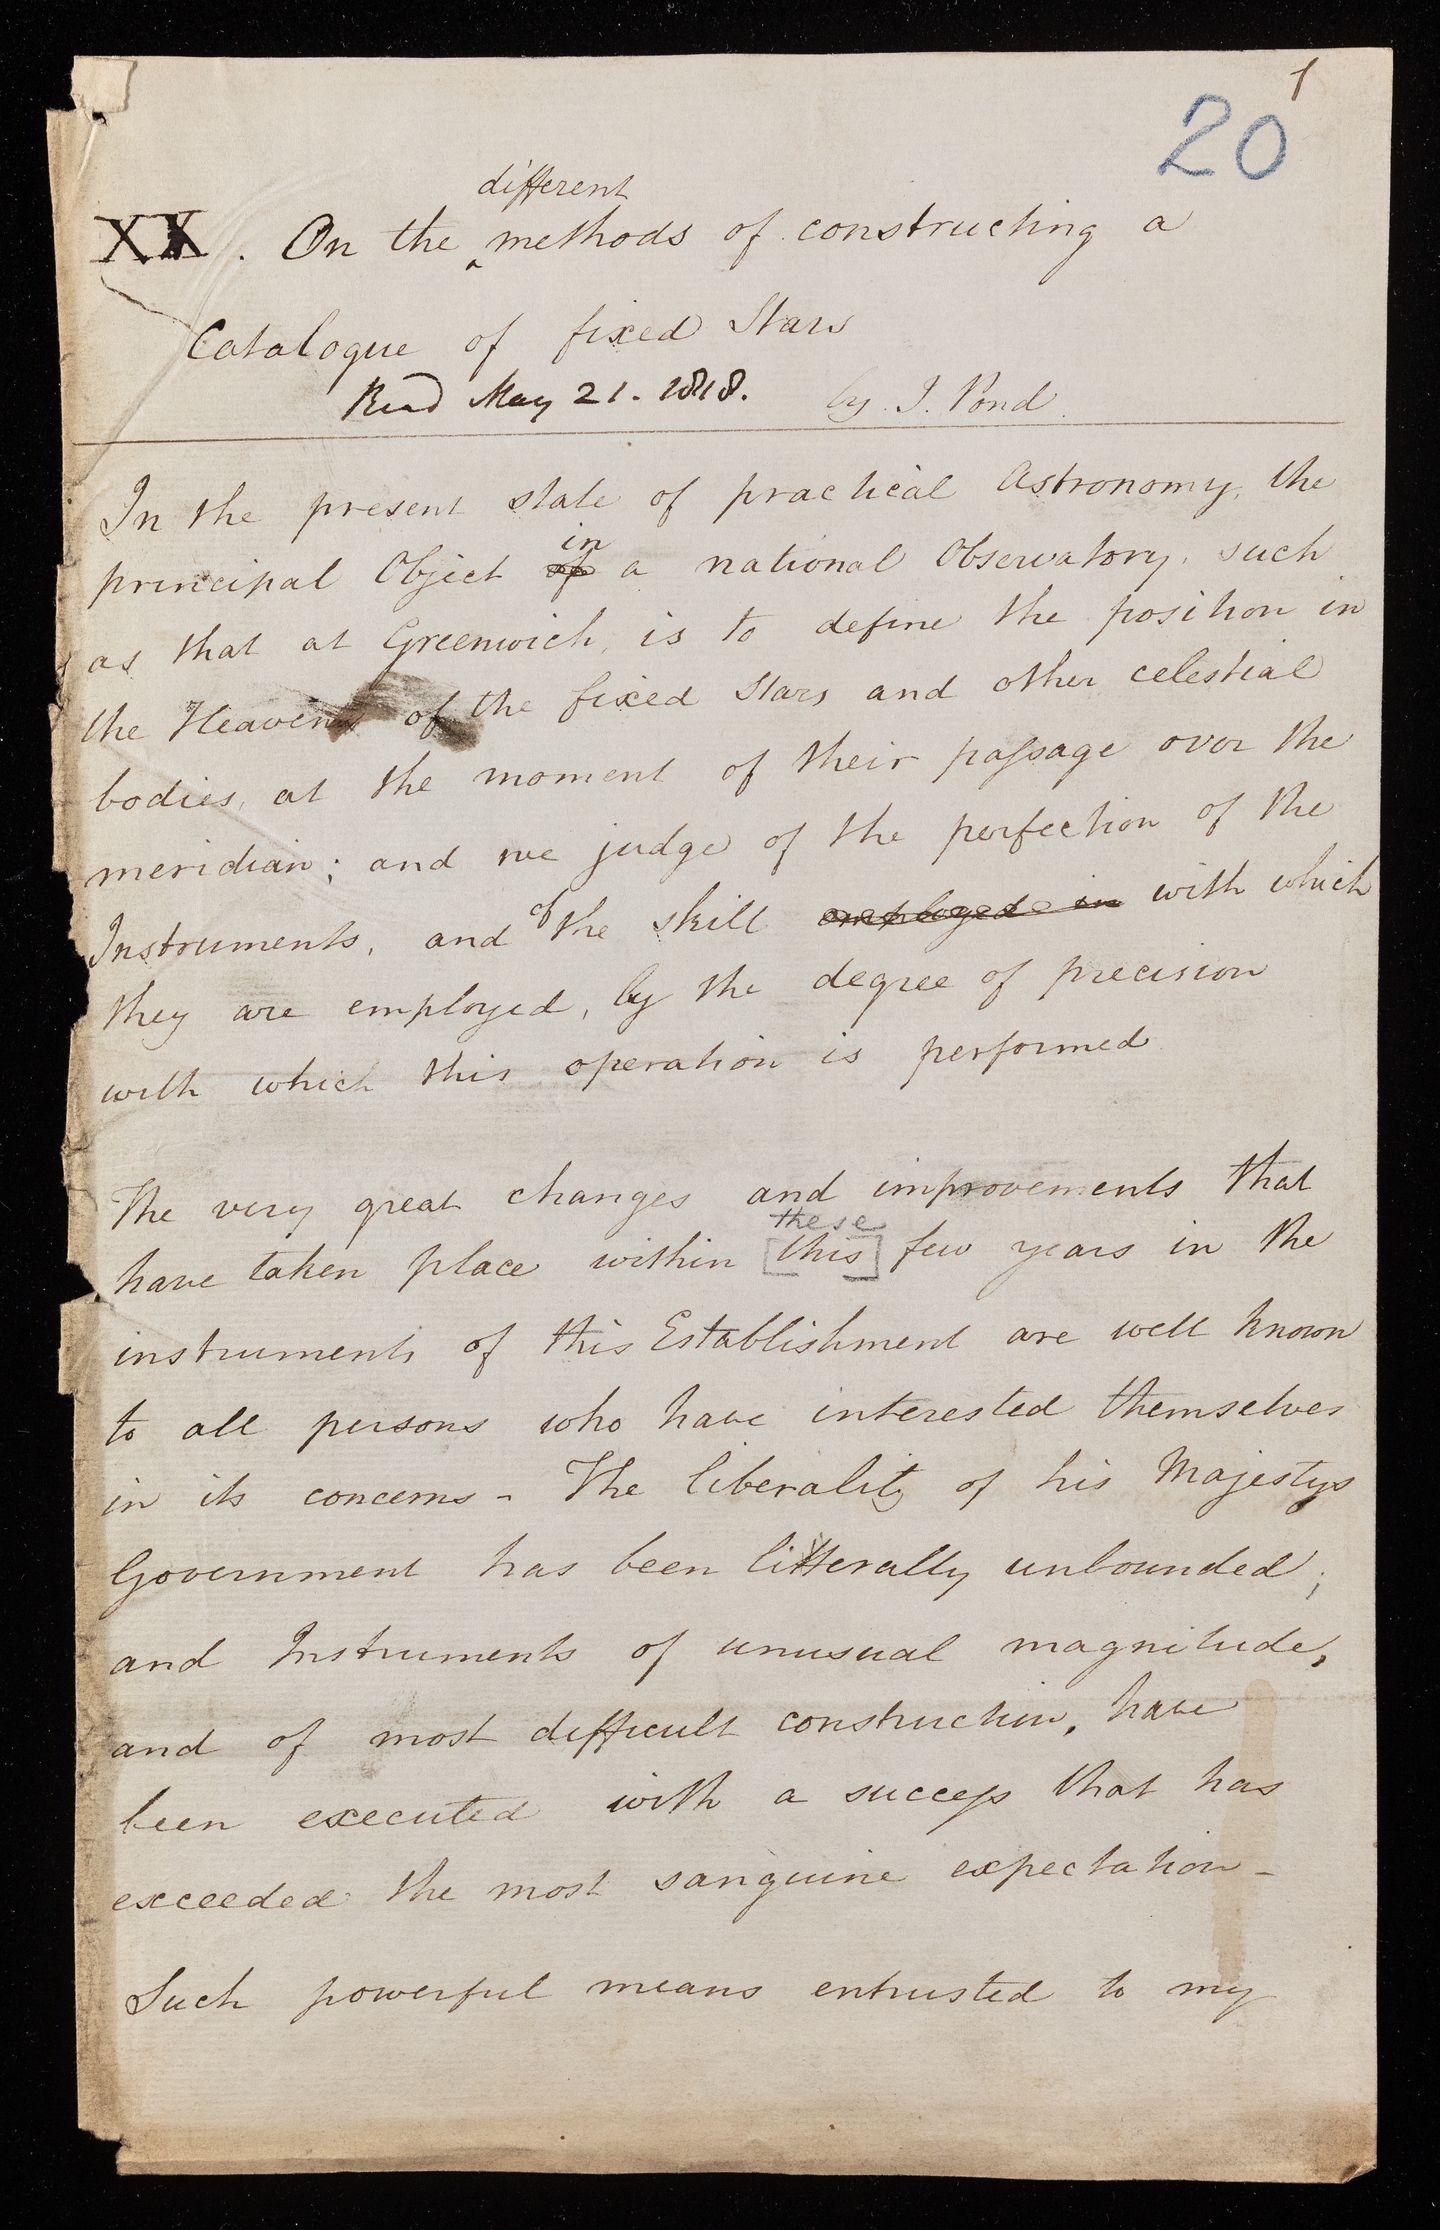 1
20
different
XX. On the ‸ methods of constructing a
Catalogue of fixed Stars
Read May 21. 1818. by J. Pond.
In the present state of practical Astronomy, the
in
principal Object of a national Observatory, such
as that at Greenwich, is to define the position in
the Heavens of the fixed Stars and other celestial
bodies, at the moment of their paſsage over the
meridian; and we judge of the perfection of the
Instruments, and of the skill employed in with which
they are employed, by the degree of precision
with which this operation is performed
The very great changes and improvements that
these
have taken place within [this] few years in the
instruments of this Establishment are well known
to all persons who have interested themselves
in its concerns - The liberality of his Majestys
Government has been litterally unbounded;
and Instruments of unusual magnitude,
and of most difficult construction, have
been executed with a succeſs that has
exceeded the most sanguine expectation -
Such powerful means entrusted to my